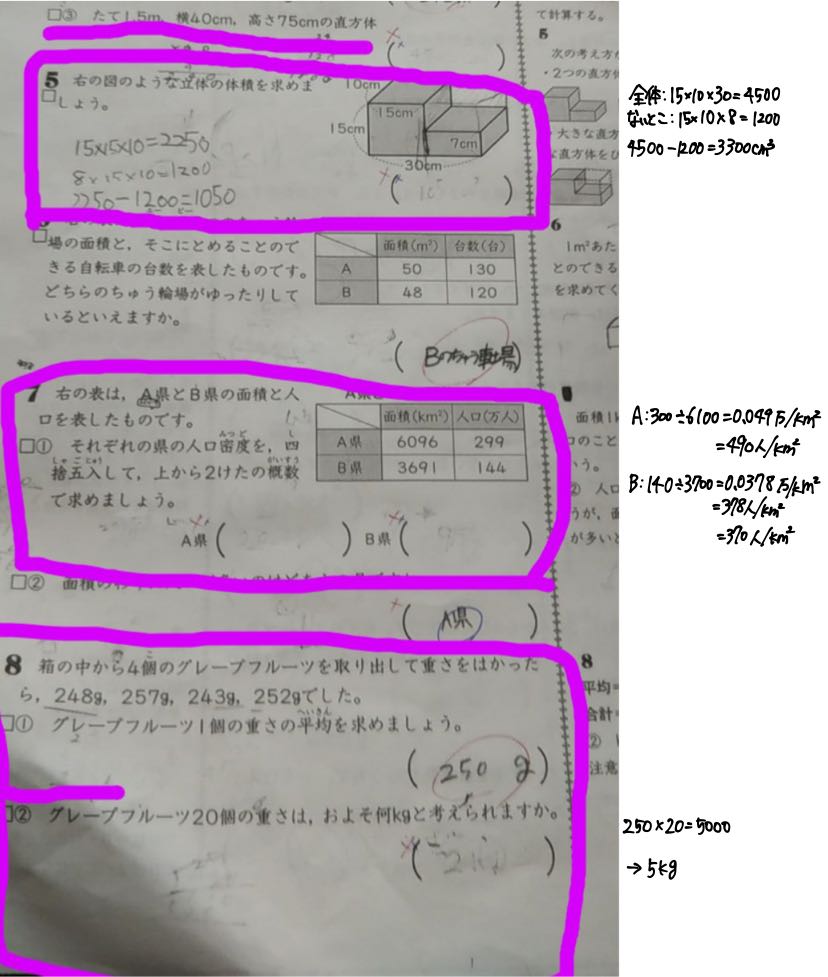 □③ たて1.5m, 横40cm, 高さ75cmの直方体
5 右の図のような立体の体積を求めま
□しょう。
10cm
15cm
15cm
7cm
30cm
15×15×10=2250
8×15×10=1200
2250-1200=1050
場の面積と, そこにとめることので
きる自転車の台数を表したものです。
どちらのちゅう輪場がゆったりして
いるといえますか。
面積(m²) 台数(台)
A 50 130
B 48 120
(Bのちゅう車場)
7 右の表は, A県とB県の面積と人
口を表したものです。
□① それぞれの県の人口密度を, 四
捨五入して, 上から2けたの概数
で求めましょう。
面積(km²) 人口(万人)
A県 6096 299
B県 3691 144
A県( ) B県( )
□② 面積の
(A県)
8 箱の中から4個のグレープフルーツを取り出して重さをはかった
ら, 248g, 257g, 243g, 252gでした。
□① グレープフルーツ1個の重さの平均を求めましょう。
(250 g)
□② グレープフルーツ20個の重さは, およそ何kgと考えられますか。
て計算する。
5
次の考え方
・2つの直方
大きな直方
な直方体をひ
6
1m²あた
とのできる
を求めてく
面積1k
口のこと
いう。
② 人口
うが, 面
が多いと
8
平均=
合計=
②
注意
全体:15×10×30=4500
ないとこ:15×10×8=1200
4500-1200=3300cm³
A:300÷6100=0.049万/km²
=490人/km²
B:140÷3700=0.0378万/km²
=378人/km²
=370人/km²
250×20=5000
→5kg